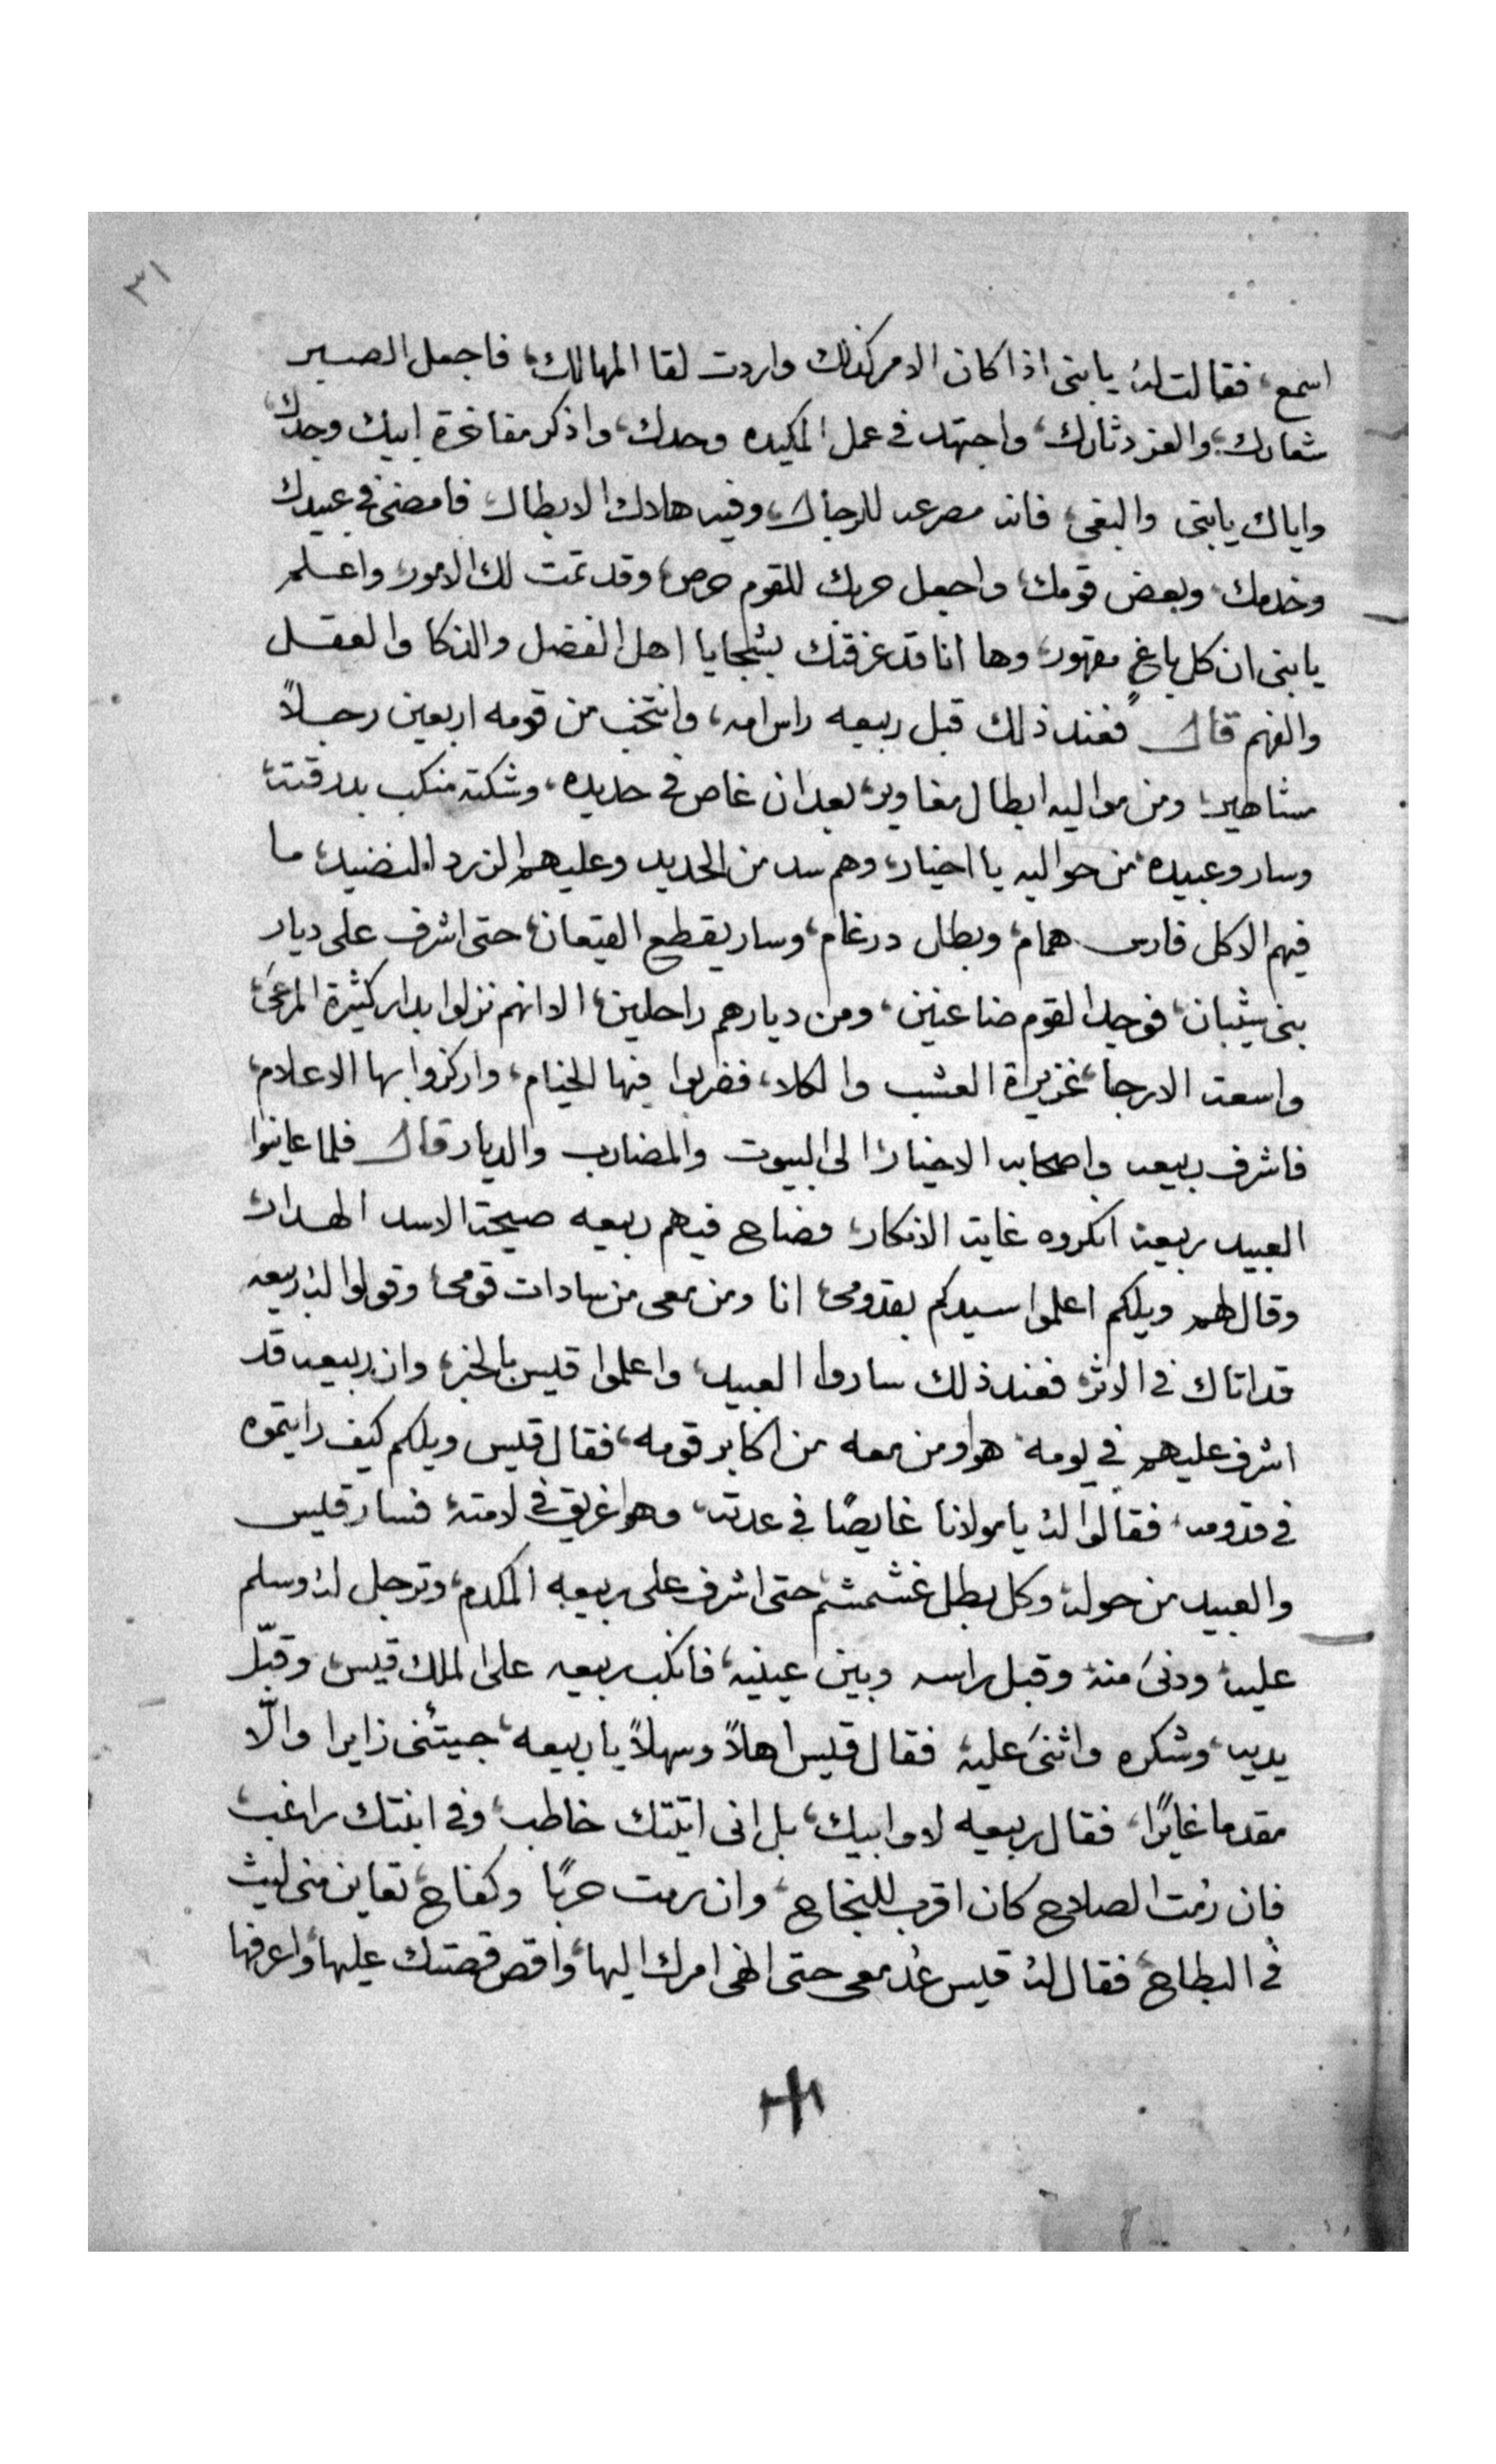 ٣١
اسمع، فقالت له يابنى اذا كان الامر كذلك واردت لقا المهالك، فاجعل الصبر
شعارك، والعز دثارك، واجتهد في عمل المكيده وحدك، واذكر مفاخرة ابيك وجدك،
واياك يابنى والبغى، فانه مصرعه للرجال، وفيه هلاك الابطال، فامضى في عبيدك
وخدمك، وبعض قومك، واجعل حربك للقوم حرص، وقد تمت لك الامور، واعلم
يابنى ان كل باغٍ مقهور، وها انا قد عرفتك بشجايا اهل الفضل والذكا والعقل
والفهم قال فعند ذلك قبل ربيعه راس امه، وانتخب من قومه اربعين رجلاً
مشاهير، ومن مواليه ابطال مغاوير، بعد ان غاص في حديده، وشكته منكب بدرقته،
وسار وعبيده من حواليه يا اخيار، وهم سد من الحديد وعليهم الزرد النضيد، ما
فيهم الا كل فارس همام، وبطل درغام، وسار يقطع القيعان، حتى اشرف على ديار
بنى شيبان، فوجد القوم ضاعنين، ومن ديارهم راحلين، الا انهم نزلوا بدار كثيرة المرعى،
واسعت الارجا، غزيرة العشب والكلا، فضربوا فيها الخيام، واركزوا بها الاعلام،
فاشرف ربيعه واصحابه الاخيار، الى البيوت والمضارب والديار قال فلما عاينوا
العبيد ربيعه انكروه غايت الانكار، فصاح فيهم ربيعه صيحة الاسد الهدار،
وقال لهم ويلكم اعلموا سيدكم بقدومى، انا ومن معى من سادات قومى، وقولوا له ربيعه
قد اتاك في الاثر، فعند ذلك ساروا العبيد، واعلموا قيس بالخبر، وان ربيعه قد
اشرف عليهم في يومه، هو ومن معه من اكابر قومه، فقال قيس ويلكم كيف رايتموه
في قدومه، فقالوا له يا مولانا غايصًا في عدته، وهو غريق في لامته، فسار قيس
والعبيد من حوله، وكل بطل غشمشم، حتى اشرف على ربيعه المكدم، وترجل له وسلم
عليه، ودنى منه وقبل راسه وبين عينيه، فانكب ربيعه على الملك قيس، وقبّل
يديه، وشكره واثنى عليه، فقال قيس اهلاً وسهلاً يا ربيعه، جيتنى زايرا والّا
مقدما غايرًا، فقال ربيعه لا وابيك، بل انى اتيتك خاطب، وفي ابنتك راغب،
فان رمت الصلاح كان اقرب للنجاح، وان رمت حربًا وكفاح، تعاين منى ليث
في البطاح، فقال له قيس عُد معى حتى انهى امرك اليها، واقص قصتك عليها، واعرفها